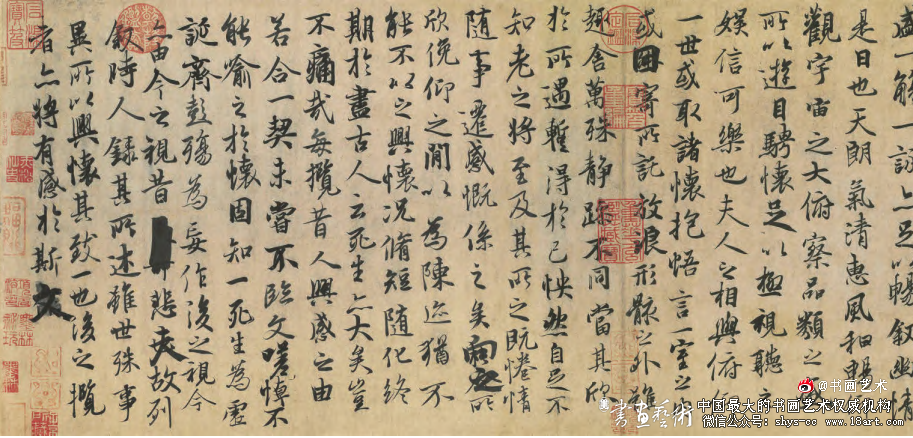 盛一觴一詠亦足以暢敘幽情
是日也天朗氣清惠風和暢
觀宇宙之大俯察品類之盛
所以遊目騁懷足以極視聽之
娛信可樂也夫人之相與俯仰
一世或取諸懷抱悟言一室之內
或因寄所託放浪形骸之外雖
趣舍萬殊靜躁不同當其欣
於所遇暫得於己怏然自足不
知老之將至及其所之既惓情
隨事遷感慨係之矣向之所
欣俛仰之閒以為陳迹猶不
能不以之興懷況脩短隨化終
期於盡古人云死生亦大矣豈
不痛哉每攬昔人興感之由
若合一契未嘗不臨文嗟悼不
能喻之於懷固知一死生為虛
誕齊彭殤為妄作後之視今
亦由今之視昔悲夫故列
敘時人錄其所述雖世殊事
異所以興懷其致一也後之攬
者亦將有感於斯文
@书画艺术
書畫藝術
中国最大的书画艺术权威机构
微信公众号：shys-cc www.18art.com